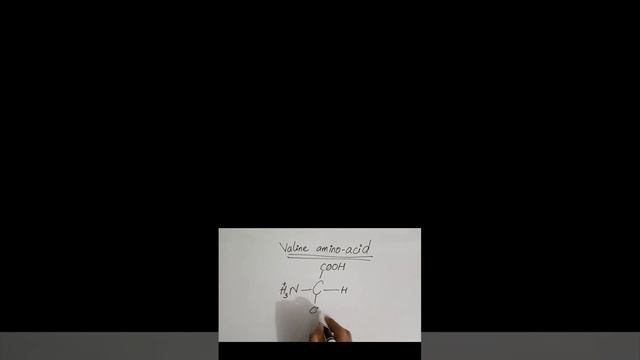 Valine amino-acid
COOH
H₃N — C — H
C